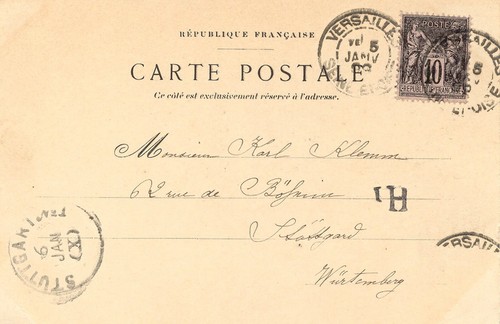 RÉPUBLIQUE FRANÇAISE
CARTE POSTALE
Ce côté est exclusivement réservé à l'adresse.
VERSAILLES
5
JANV
POSTE
10
RÉPUBLIQUE FRANÇAISE
Monsieur Karl Klemm
62 rue de Böheim
Stottgard
Würtemberg
H1
STUTTGART No1
6
JAN
(X)
VERSAILLES